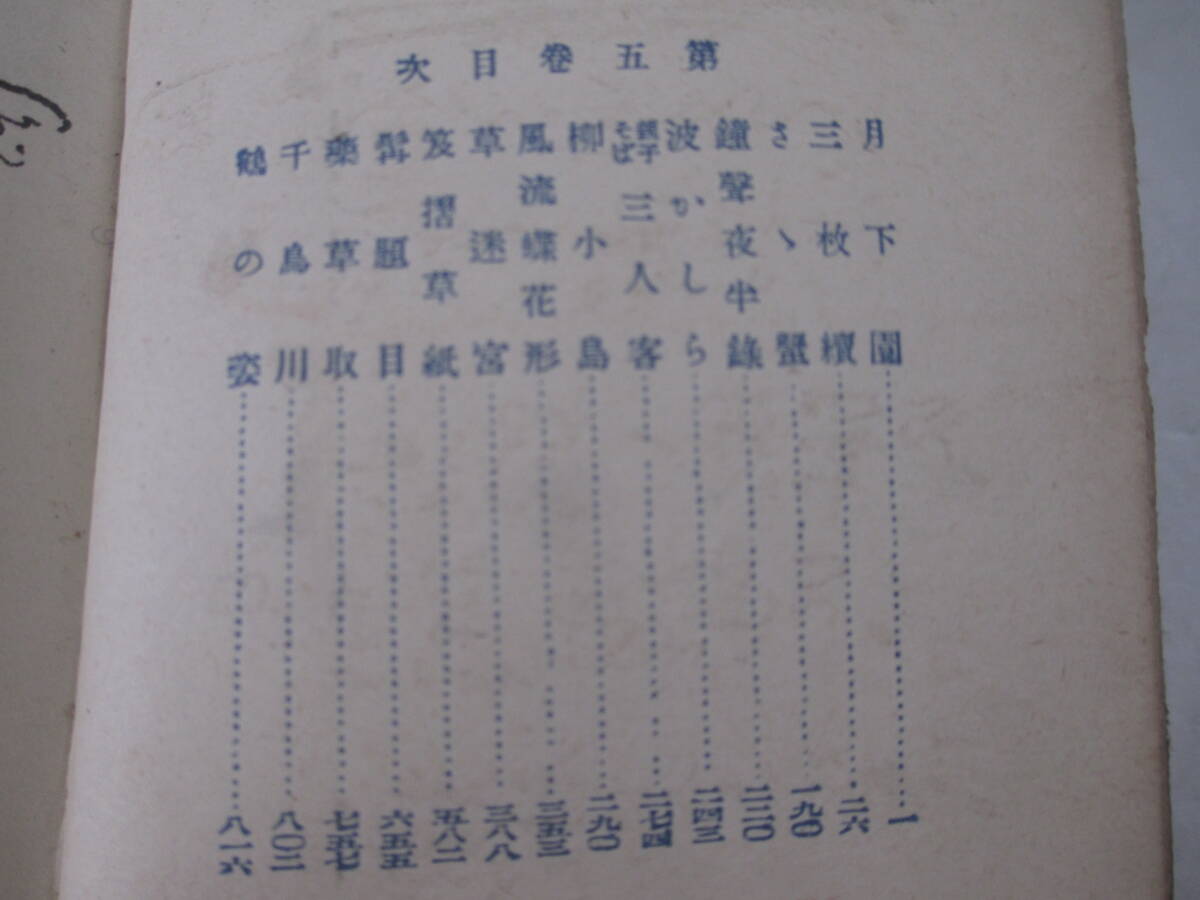 第五巻目次
月下園……一
三枚續……二六
さゝ蟹……一九〇
鐘聲夜半錄……二二〇
波がしら……二四三
銚子そば三人客……二七四
柳小島……二九〇
風流蝶花形……三五三
草迷宮……三八八
笈摺草紙……五八二
髯題目……六五五
藥草取……七五七
千鳥川……八〇二
鶴の姿……八一六